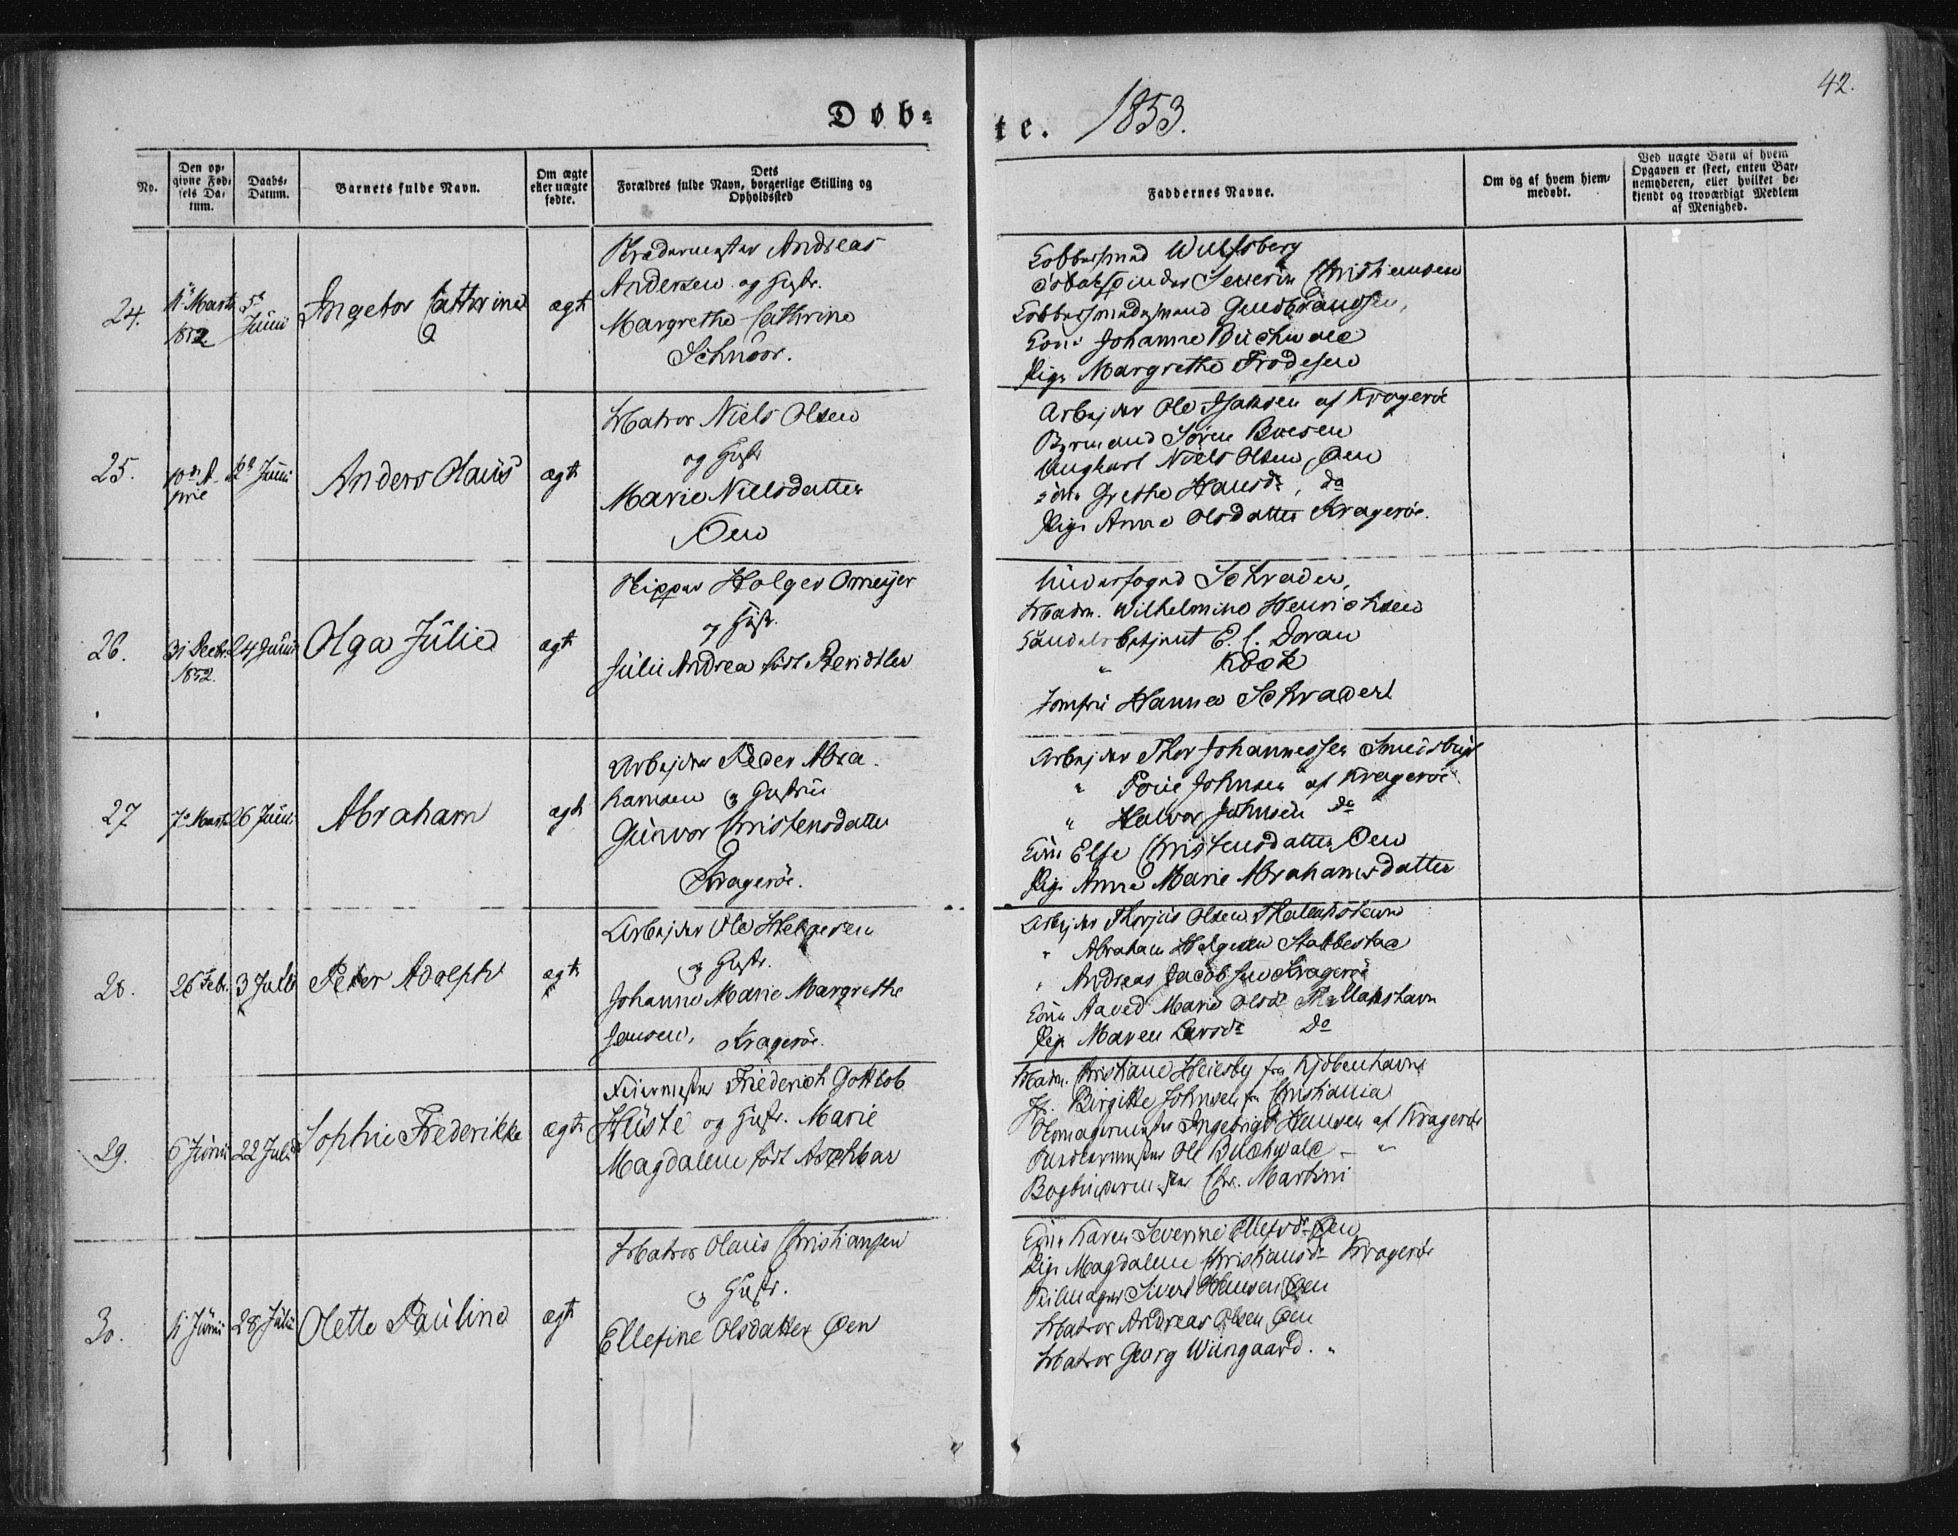 Døb=
te. 1853.
42.
No.
Den op-
givne Fød-
sels Da-
tum.
Daabs-
Datum.
Barnets fulde Navn.
Om ægte
eller uægte
fødte.
Dets
Forældres fulde Navn, borgerlige Stilling og
Opholdssted
Faddernes Navne.
Om og af hvem hjem-
medøbt.
Ved uægte Børn af hvem
Opgaven er skeet, enten Bar-
nemoderen, eller hvilket be-
kjendt og troværdigt Medlem
af Menighed.
24.
Marts
1852
5te
Juni
Ingebor Cathrine
ægte
Andreas
Andersen og Hustr.
Margrethe Cathrine
Schnoor.
Wulfsberg
Severin Christiansen
Gudbrandsen,
Kone Johanne Buchwald
Pige Margrethe Frodesen
25.
10de A-
pril
12te Juni
Anders Olaus
ægte
Matros Niels Olsen
og Hustr
Marie Nielsdatter
Øen
Arbejder Ole Isaksen af Kragerøe
Bymand Søren Boesen
Ungkarl Niels Olsen, Øen
Kone Grethe Hansdr, do
Pige Anne Olsdatter Kragerøe.
26.
31 Decbr.
1852.
24 Juni
Olga Julie
ægte
Skipper Holger Omeyer
og Hustr.
Julie Andrea født Rendtler
Underfoged Schrader,
Madm. Wilhelmine Henrichsen
Handelsbetjent E. C. Doran
" Kook
Jomfru Hanna Schrader
27.
7de Marts
26 Juni
Abraham
ægte
Arbejder Peder Abra-
hamsen og Hustru
Gunvor Christensdatter
Kragerøe.
Arbejder Thor Johannessen Smedsbugt
" Johnsen af Kragerøe
" Halvor Johnsen do
Kone Else Christensdatter Øen
Pige Anne Marie Abrahamsdatter
28.
26 Febr.
3 Juli
Peter Adolph
ægte
Arbejder Ole Helgesen
og Hustr.
Johanne Marie Margrethe
Jensen, Kragerøe.
Arbejder Thorjus Olsen
" Abraham Helgesen Stabbestad
" Andreas Jacobsen Kragerøe
Kone Aaved Marie Olsdr
Pige Maren Larsdr do
29.
6 Juni
22 Juli
Sophie Frederikke
ægte
Feiermester Friederich Gottlob
Küste og Hustr. Marie
Magdalene født Aschbar
Madm. Christiane Heiesby fra Kjøbenhavn
Jf. Birgitte Johnsen fra Christiania
Skomagermester Ingebrigt Hansen af Kragerøe
Ole Buchwald - "
Bogbindermester Chr. Martini
30.
Juni
28 Juli
Olette Pauline
ægte
Matros Olaus Christiansen
og Hustr.
Ellefine Olsdatter Øen
Kone Karen Severine Ellefsdr Øen
Pige Magdalene Christiansdr Kragerøe
Seilmager Sivert Hansen Øen
Matros Andreas Olsen Øen
Matros Georg Wiingaard. "